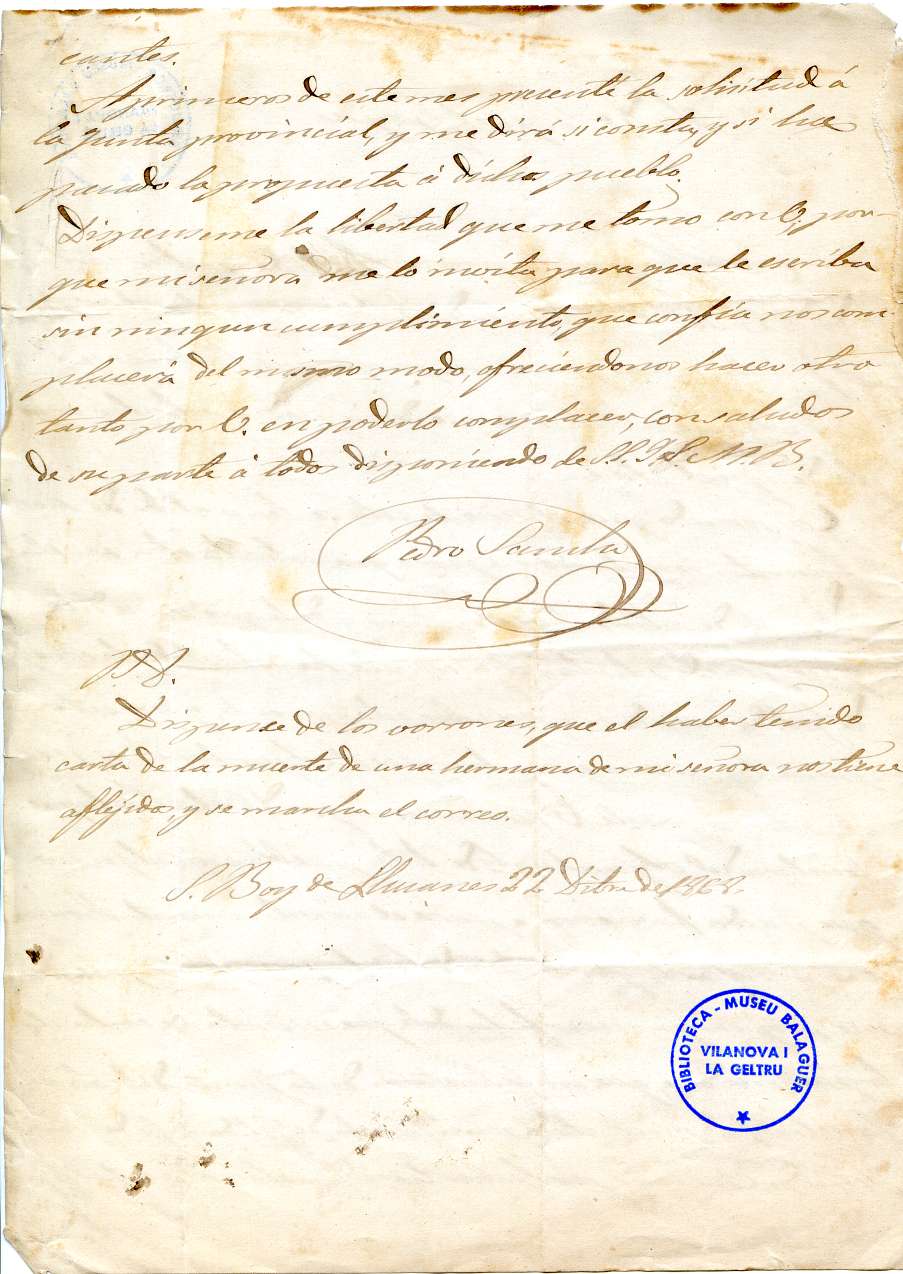 cantes.
A primeros de este mes presenté la solisitud á
la junta provincial, y me dirá si consta, y si há
pasado la propuesta á dicho pueblo.
Dispenseme la libertad que me tomo con V, por-
que mi señora me lo invita para que le escriba
sin ningun cumplimiento, que confia nos com-
placerá del mismo modo, ofreciendonos hacer otro
tanto por V. en poderlo complacer, con saludos
de su parte á todos disponiendo de S.S. M.B.
Pedro
PD.
Dispense de los vorrones, que el haber tenido
carta de la muerte de una hermana de mi señora nos tiene
aflejidos, y se marcha el correo.
S. Boy de Llusanes 22 Dibre de 1868.
BIBLIOTECA - MUSEU BALAGUER
VILANOVA I
LA GELTRU